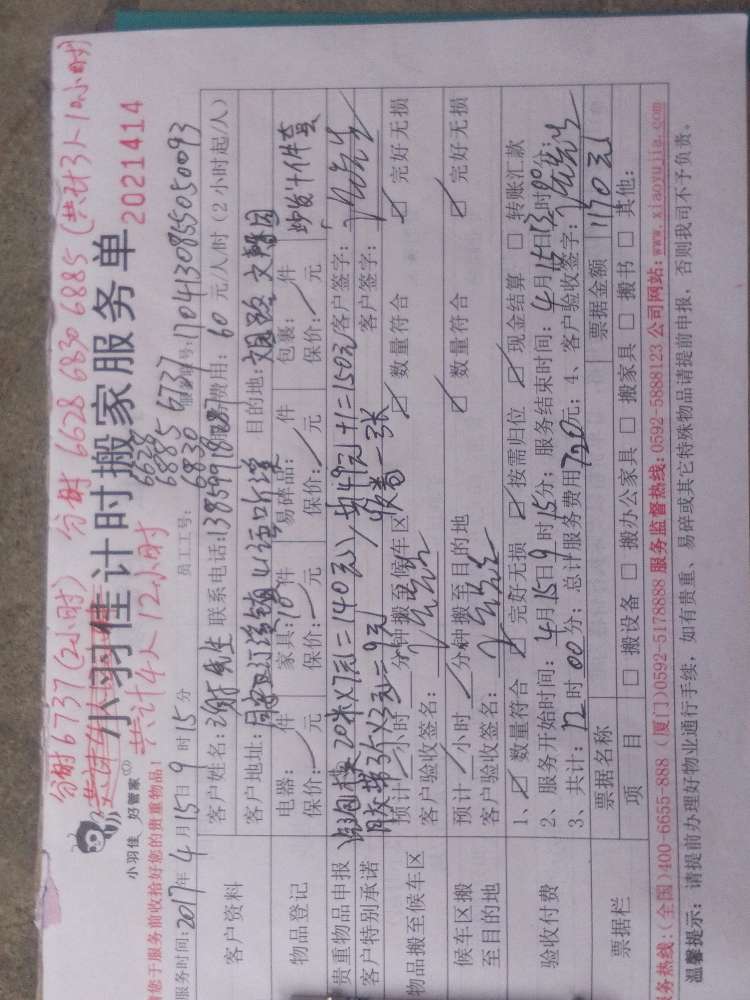 分时 6737 (2小时) 分时 6628 6830 6885 (共计3人10小时)
共计4人12小时
小羽佳 好管家
小羽佳计时搬家服务单
2021414
请您于服务前收拾好您的贵重物品!
6628
6885 6737
6830
服务时间: 2017年 4月15日 9时15分 员工工号: 服务单号: 1704130855050093
客户资料
客户姓名: 谢先生 联系电话: 13859918087 服务费用: 60 元/人/时 (2小时起/人)
客户地址: 目的地: 文园路
物品登记
电器: 件 家具: 10件 易碎品: 件 包裹: 件 沙发十件套
保价: 元 保价: 元 保价: 元 保价: 元
贵重物品申报 20米X7元=140元 共49元+1=150元 客户签字:
客户特别承诺 胶带3个X3元=9元 收卷一张 客户签字:
物品搬至候车区
预计 小时 分钟搬至候车区 ☑ 数量符合 ☑ 完好无损
客户验收签名:
候车区搬至目的地
预计 小时 分钟搬至目的地 ☑ 数量符合 ☑ 完好无损
客户验收签名:
验收付费
1、☑ 数量符合 ☑ 完好无损 ☑ 按需归位 ☑ 现金结算 □ 转账汇款
2、服务开始时间: 4月15日9时15分; 服务结束时间: 4月15日13时00分;
3、共计: 12时00分; 总计服务费用720元; 4、客户验收签字:
票据栏
票据名称 票据金额 1170元
项目 □ 搬设备 □ 搬办公家具 □ 搬家具 □ 搬书 □ 其他:
务热线: (全国)400-6655-888 (厦门)0592-5178888 服务监督热线: 0592-5888123 公司网站: www.xiaoyujia.com
温馨提示: 请提前办理好物业通行手续, 如有贵重、易碎或其它特殊物品请提前申报, 否则我司不予负责。